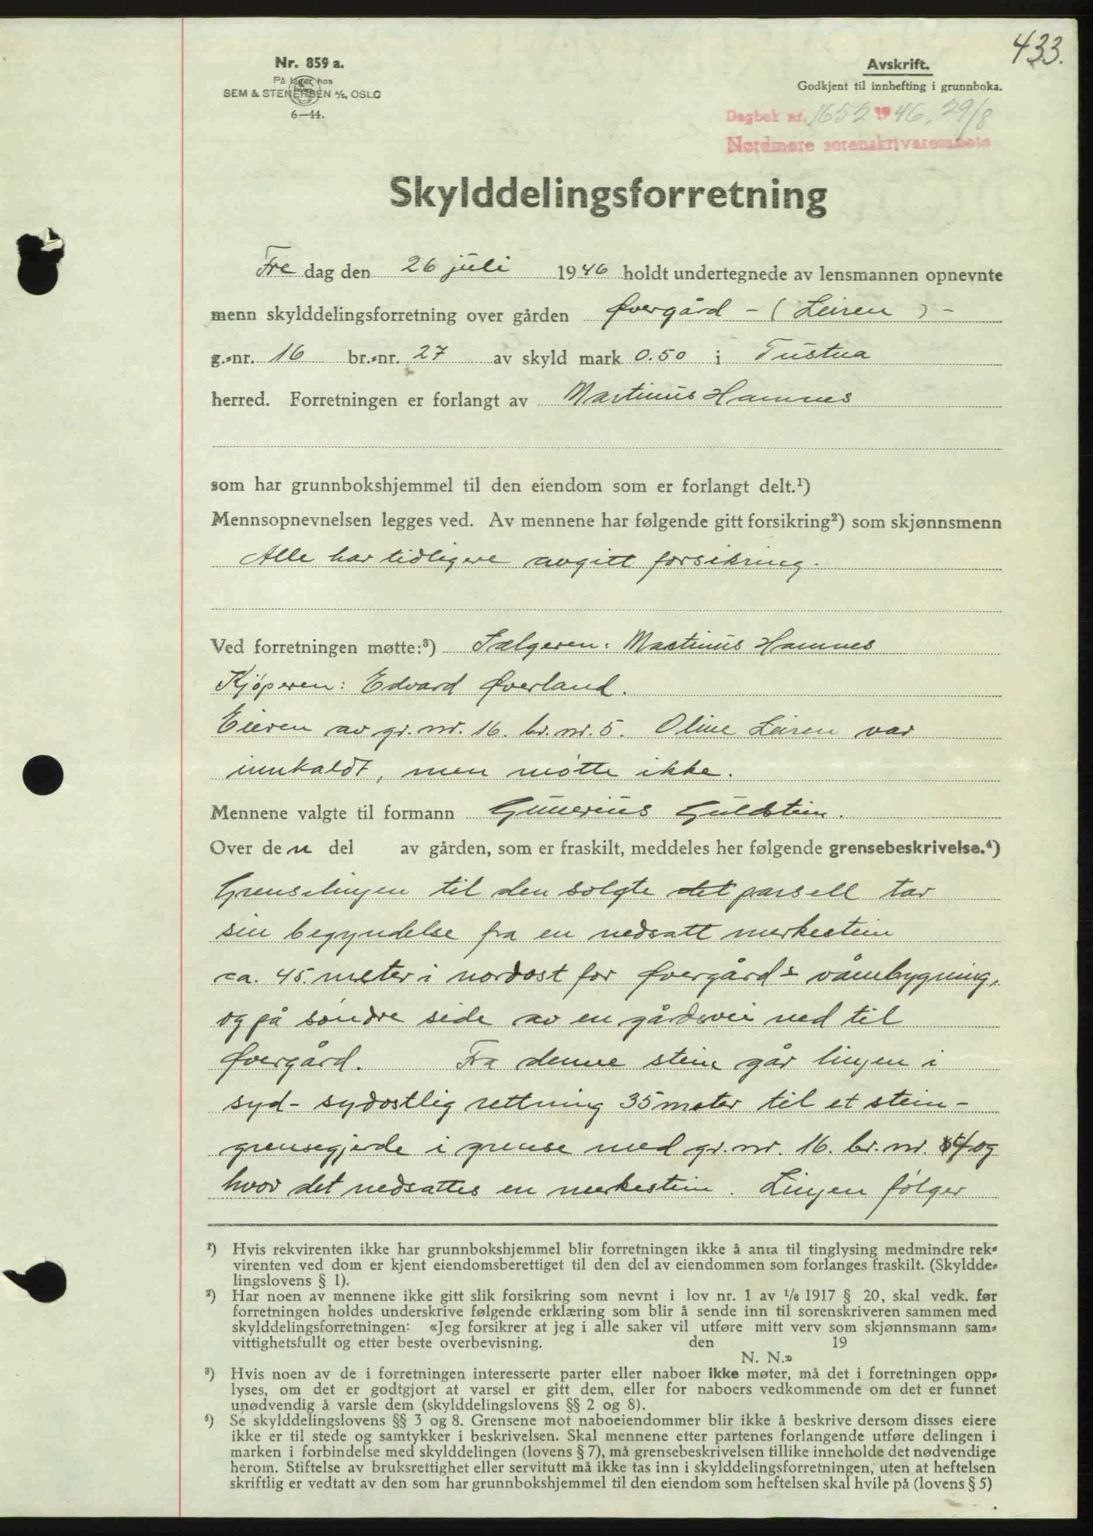 433.
Nr. 859 a.
På lager hos
SEM & STENERSEN A/S, OSLO
6—44.
Avskrift.
Godkjent til innhefting i grunnboka.
Dagbok nr. 1652 19 46, 29/8
Nordmøre sorenskriverembete
Skylddelingsforretning
Fre dag den 26 juli 1946 holdt undertegnede av lensmannen opnevnte
menn skylddelingsforretning over gården Øvergård - (Leiren) -
g.-nr. 16 br.-nr. 27 av skyld mark 0.50 i Tustna
herred. Forretningen er forlangt av Martinus Hamnes
som har grunnbokshjemmel til den eiendom som er forlangt delt.¹)
Mennsopnevnelsen legges ved. Av mennene har følgende gitt forsikring²) som skjønnsmenn
Alle har tidligere avgitt forsikring.
Ved forretningen møtte:³) Sælgeren: Martinus Hamnes
Kjøperen: Edvard Øverland.
Eieren av gr. nr. 16. br. nr. 5. Oline Leiren var
innkaldt, men møtte ikke.
Mennene valgte til formann Gunerius Guldstein.
Over den del av gården, som er fraskilt, meddeles her følgende grensebeskrivelse.⁴)
Grenselinjen til den solgte det parsell tar
sin begyndelse fra en nedsatt merkestein
ca. 45 meter i nordost for Øvergårds våнbygning,
og på søndre side av en gårdsvei ned til
Øvergård. Fra denne stein går linjen i
syd- sydostlig rettning 35 meter til et stein-
grensegjerde i grense med gr. nr. 16. br. nr. 4 og
hvor det nedsattes en merkestein. Linjen følger
¹) Hvis rekvirenten ikke har grunnbokshjemmel blir forretningen ikke å anta til tinglysing medmindre rek-
virenten ved dom er kjent eiendomsberettiget til den del av eiendommen som forlanges fraskilt. (Skyldde-
lingslovens § 1).
²) Har noen av mennene ikke gitt slik forsikring som nevnt i lov nr. 1 av 1/6 1917 § 20, skal vedk. før
forretningen holdes underskrive følgende erklæring som blir å sende inn til sorenskriveren sammen med
skylddelingsforretningen: «Jeg forsikrer at jeg i alle saker vil utføre mitt verv som skjønnsmann sam-
vittighetsfullt og etter beste overbevisning. den 19
N. N.»
³) Hvis noen av de i forretningen interesserte parter eller naboer ikke møter, må det i forretningen opp-
lyses, om det er godtgjort at varsel er gitt dem, eller for naboers vedkommende om det er funnet
unødvendig å varsle dem (skylddelingslovens §§ 2 og 8).
⁴) Se skylddelingslovens §§ 3 og 8. Grensene mot naboeiendommer blir ikke å beskrive dersom disses eiere
ikke er til stede og samtykker i beskrivelsen. Skal mennene etter partenes forlangende utføre delingen i
marken i forbindelse med skylddelingen (lovens § 7), må grensebeskrivelsen tillike inneholde det nødvendige
herom. Stiftelse av bruksrettighet eller servitutt må ikke tas inn i skylddelingsforretningen, uten at heftelsen
skriftlig er vedtatt av den som har grunnbokshjemmel til den eiendom som heftelsen skal hvile på (lovens § 5)